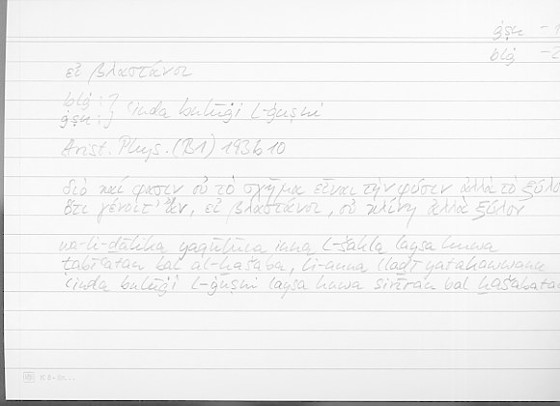 ġṣn - 1
blġ - 2
εἰ βλαστάνοι
blġ : }
ġṣn : } ʿinda bulūġi l-ġuṣni
Arist. Phys. (B1) 193b10
διὸ καί φασιν οὐ τὸ σχῆμα εἶναι τὴν φύσιν ἀλλὰ τὸ ξύλο
ὅτι γένοιτ' ἄν, εἰ βλαστάνοι, οὐ κλίνη ἀλλὰ ξύλον
wa-li-ḏālika yaqūlūna inna l-šakla laysa huwa
ṭabīʿatan bal al-ḫašaba, li-anna llaḏī yatakawwanu
ʿinda bulūġi l-ġuṣni laysa huwa sarīran bal ḫašabatan